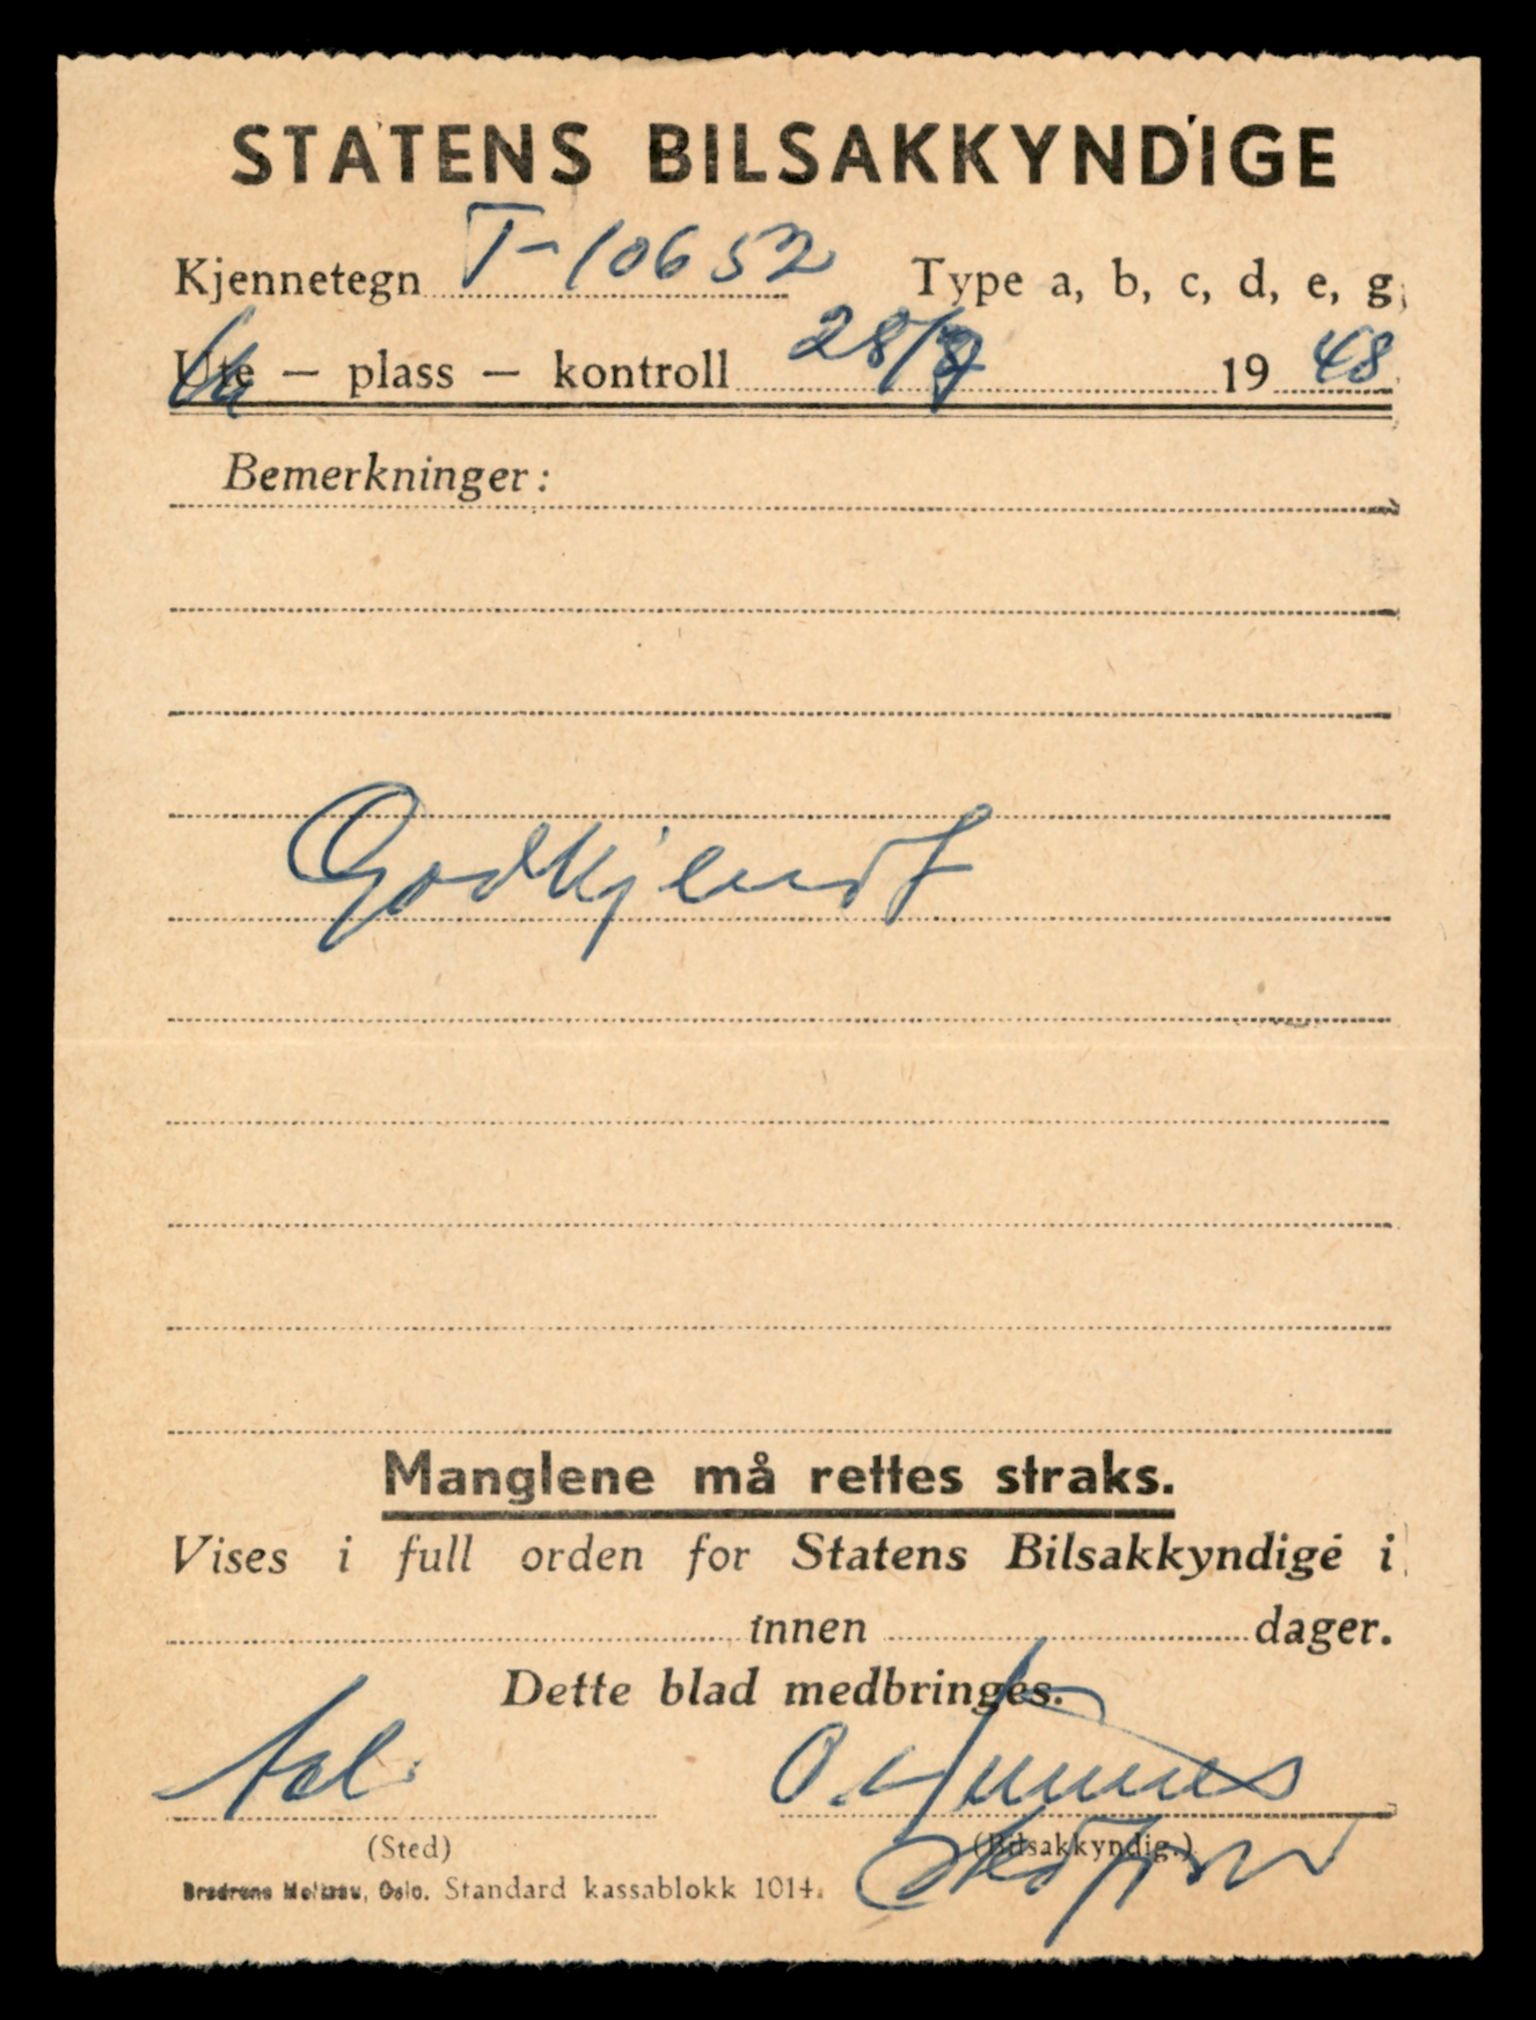 STATENS BILSAKKYNDIGE
Kjennetegn T-10652 Type a, b, c, d, e, g,
Ute — plass — kontroll 28/ 19 48
Bemerkninger:
Godkjendt
Manglene må rettes straks.
Vises i full orden for Statens Bilsakkyndige i
innen dager.
Dette blad medbringes.
O.
(Sted) (Bilsakkyndig.)
Brødrene Oslo. Standard kassablokk 1014.